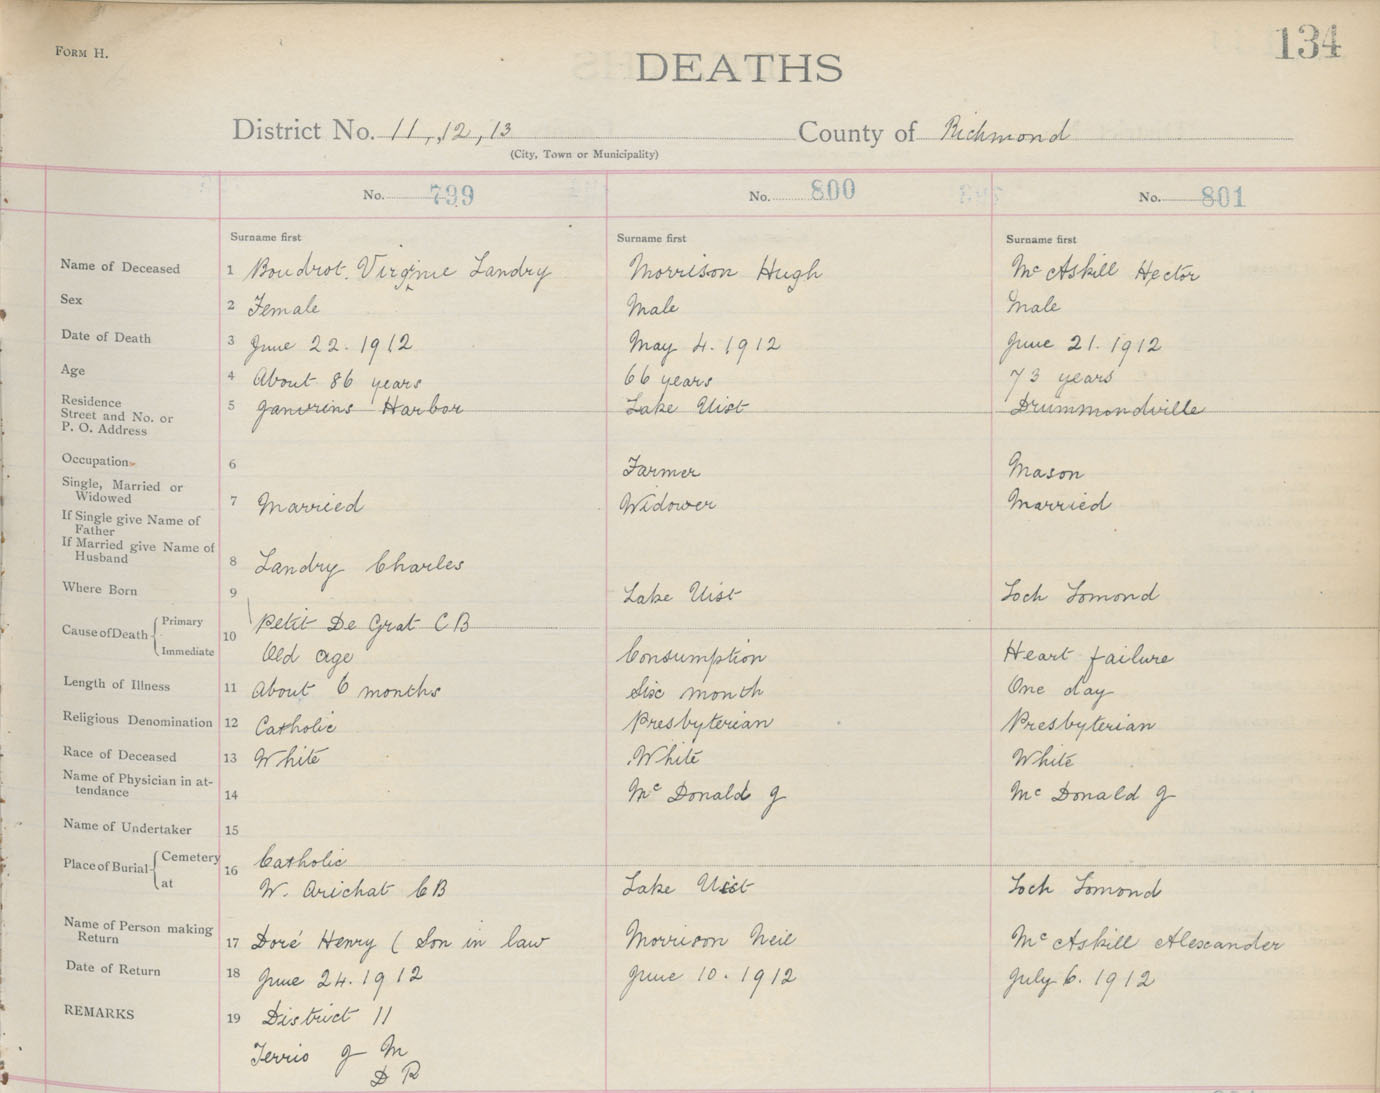 FORM H.
134
DEATHS
District No. 11, 12, 13 County of Richmond
(City, Town or Municipality)
No. 799 No. 800 No. 801
Surname first Surname first Surname first
Name of Deceased 1 Boudrot Virginie Landry Morrison Hugh McAskill Hector
Sex 2 Female Male Male
Date of Death 3 June 22. 1912 May 4. 1912 June 21. 1912
Age 4 About 86 years 66 years 73 years
Residence
Street and No. or
P. O. Address 5 Janvrins Harbor Lake Uist Drummondville
Occupation 6 Farmer Mason
Single, Married or
Widowed 7 Married Widower Married
If Single give Name of
Father
If Married give Name of
Husband 8 Landry Charles
Where Born 9 Lake Uist Loch Lomond
Cause of Death Primary 10 Petit De Grat C B
Immediate Old age Consumption Heart failure
Length of Illness 11 About 6 months Six month One day
Religious Denomination 12 Catholic Presbyterian Presbyterian
Race of Deceased 13 White White White
Name of Physician in at-
tendance 14 Mc Donald J Mc Donald J
Name of Undertaker 15
Place of Burial Cemetery 16 Catholic
at W. Arichat C B Lake Uist Loch Lomond
Name of Person making
Return 17 Doré Henry ( Son in law Morrison Neil Mc Askill Alexander
Date of Return 18 June 24. 1912 June 10. 1912 July 6. 1912
REMARKS 19 District 11
Terrio J M
D R